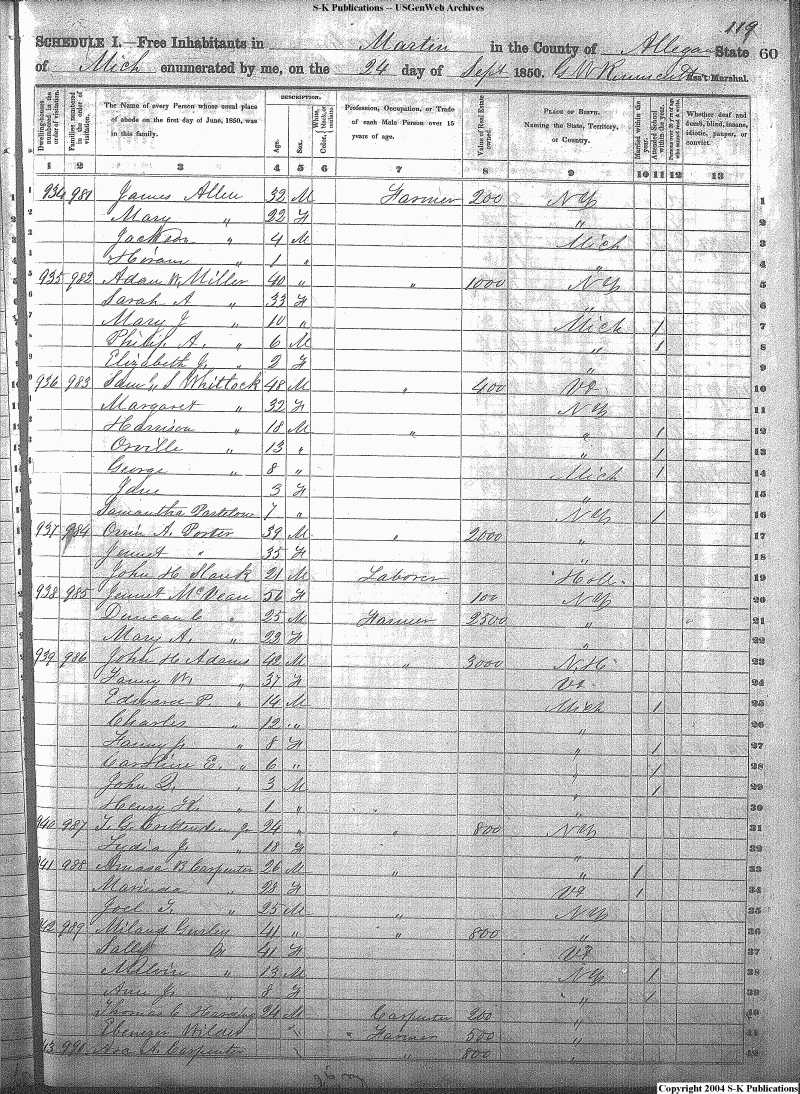 S-K Publications -- USGenWeb Archives
119
SCHEDULE I.—Free Inhabitants in Martin in the County of Allegan State 60
of Mich enumerated by me, on the 24 day of Sept 1850. Ass't Marshal.
Dwelling-houses numbered in the order of visitation. Families numbered in the order of visitation. The Name of every Person whose usual place of abode on the first day of June, 1850, was in this family. DESCRIPTION. Age. Sex. Color, White, black, or mulatto. Profession, Occupation, or Trade of each Male Person over 15 years of age. Value of Real Estate owned. PLACE OF BIRTH. Naming the State, Territory, or Country. Married within the year. Attended School within the year. Whether deaf and dumb, blind, insane, idiotic, pauper, or convict.
1 2 3 4 5 6 7 8 9 10 11 12 13
1 934 981 James Allen 32 M Farmer 200 NY 1
2 Mary " 22 F " 2
3 Jackson " 4 M Mich 3
4 Hiram " 1 " " 4
5 935 982 Adam W. Miller 40 " " 1000 NY 5
6 Sarah A " 33 F " 6
7 Mary J " 10 " Mich / 7
8 Philip A. " 6 M " / 8
9 Elizabeth J. " 2 F " 9
10 936 983 Saml. S Whitlock 48 M " 400 Vt 10
11 Margaret " 32 F NY 11
12 Harrison " 18 M " " / 12
13 Orville " 13 " " / 13
14 George " 8 " Mich / 14
15 Jane 3 F " 15
16 Samantha 7 " NY / 16
17 937 984 Orrin A. Porter 39 M " 2000 " 17
18 Jennet " 35 F " 18
19 John H 21 M Laborer Holl. 19
20 938 985 Jennet McVean 56 F 100 NY 20
21 Duncan C " 25 M Farmer 2500 " 21
22 Mary A. " 22 F " 22
23 939 986 John H Adams 42 M " 3000 N.H. 23
24 Fanny W. " 37 F Vt. 24
25 Edward P. " 14 M Mich / 25
26 Charles " 12 " " 26
27 Fanny " 8 F " / 27
28 Caroline E. " 6 " " / 28
29 John Q. " 3 M " / 29
30 Henry H. " 1 " " 30
31 940 987 T. G. Crittenden Jr 24 " " 800 NY 31
32 Lydia J. " 18 F " 32
33 941 988 Amasa B Carpenter 26 M " " / 33
34 Marinda " 28 F Vt / 34
35 Joel T. " 25 M " NY 35
36 942 989 Miland Gurley 41 " " 800 " 36
37 41 F Vt 37
38 Melvin " 13 M NY / 38
39 Ann J. 8 F " / 39
40 Thomas C 24 M Carpenter 200 " 40
41 Ebenezer Wilder " Farmer 500 " 41
42 943 991 Asa A. Carpenter " " 800 " 42
Copyright 2004 S-K Publications